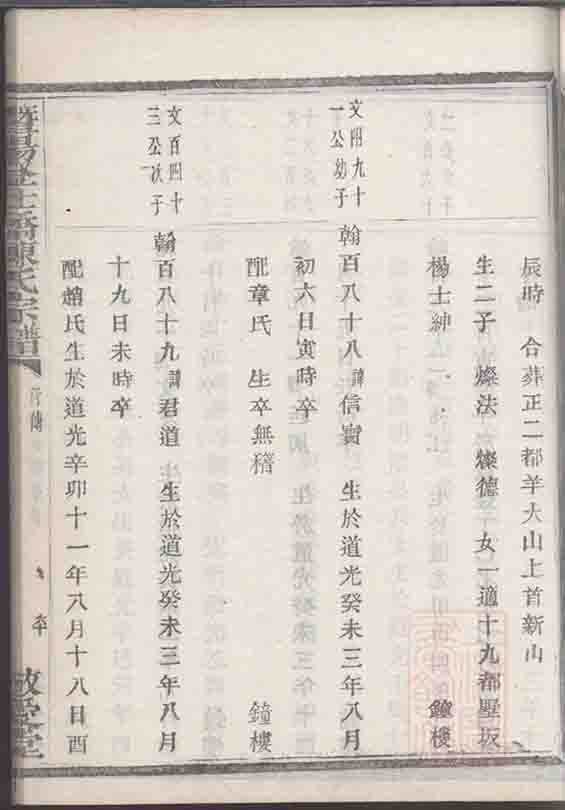 辰時　合葬正二都羊大山上首新山
生二子燦法　燦德　女一適十九都墅坂
楊士紳　鐘樓
文四九十一公幼子
翰百八十八諱信實　生於道光癸未三年八月
初六日寅時卒
配章氏　生卒無稽　鐘樓
文百四十三公次子
翰百八十九諱君道　生於道光癸未三年八月
十九日未時卒
配趙氏生於道光辛卯十一年八月十八日酉
暨陽
陳氏宗譜
行傳